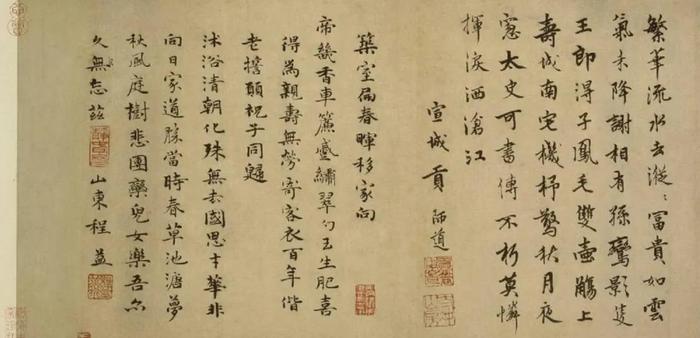 繁華流水去漎〻富貴如雲
氣未降謝相有孫鸞影隻
王郎得子鳳毛雙壺觴上
壽城南宅機杼驚秋月夜
窻太史可書傳不朽莫憐
揮淚洒滄江
宣城貢師道
築室扁春暉移家向
帝畿香車簾蹙繡翠勺玉生肥喜
得為親壽無勞寄客衣百年偕
老願祝子同歸
沐浴清朝化殊無去國思才華非
向日家道勝當時春草池塘夢
秋風庭樹悲團欒兒女樂吾亦
久無忘茲
山東程益